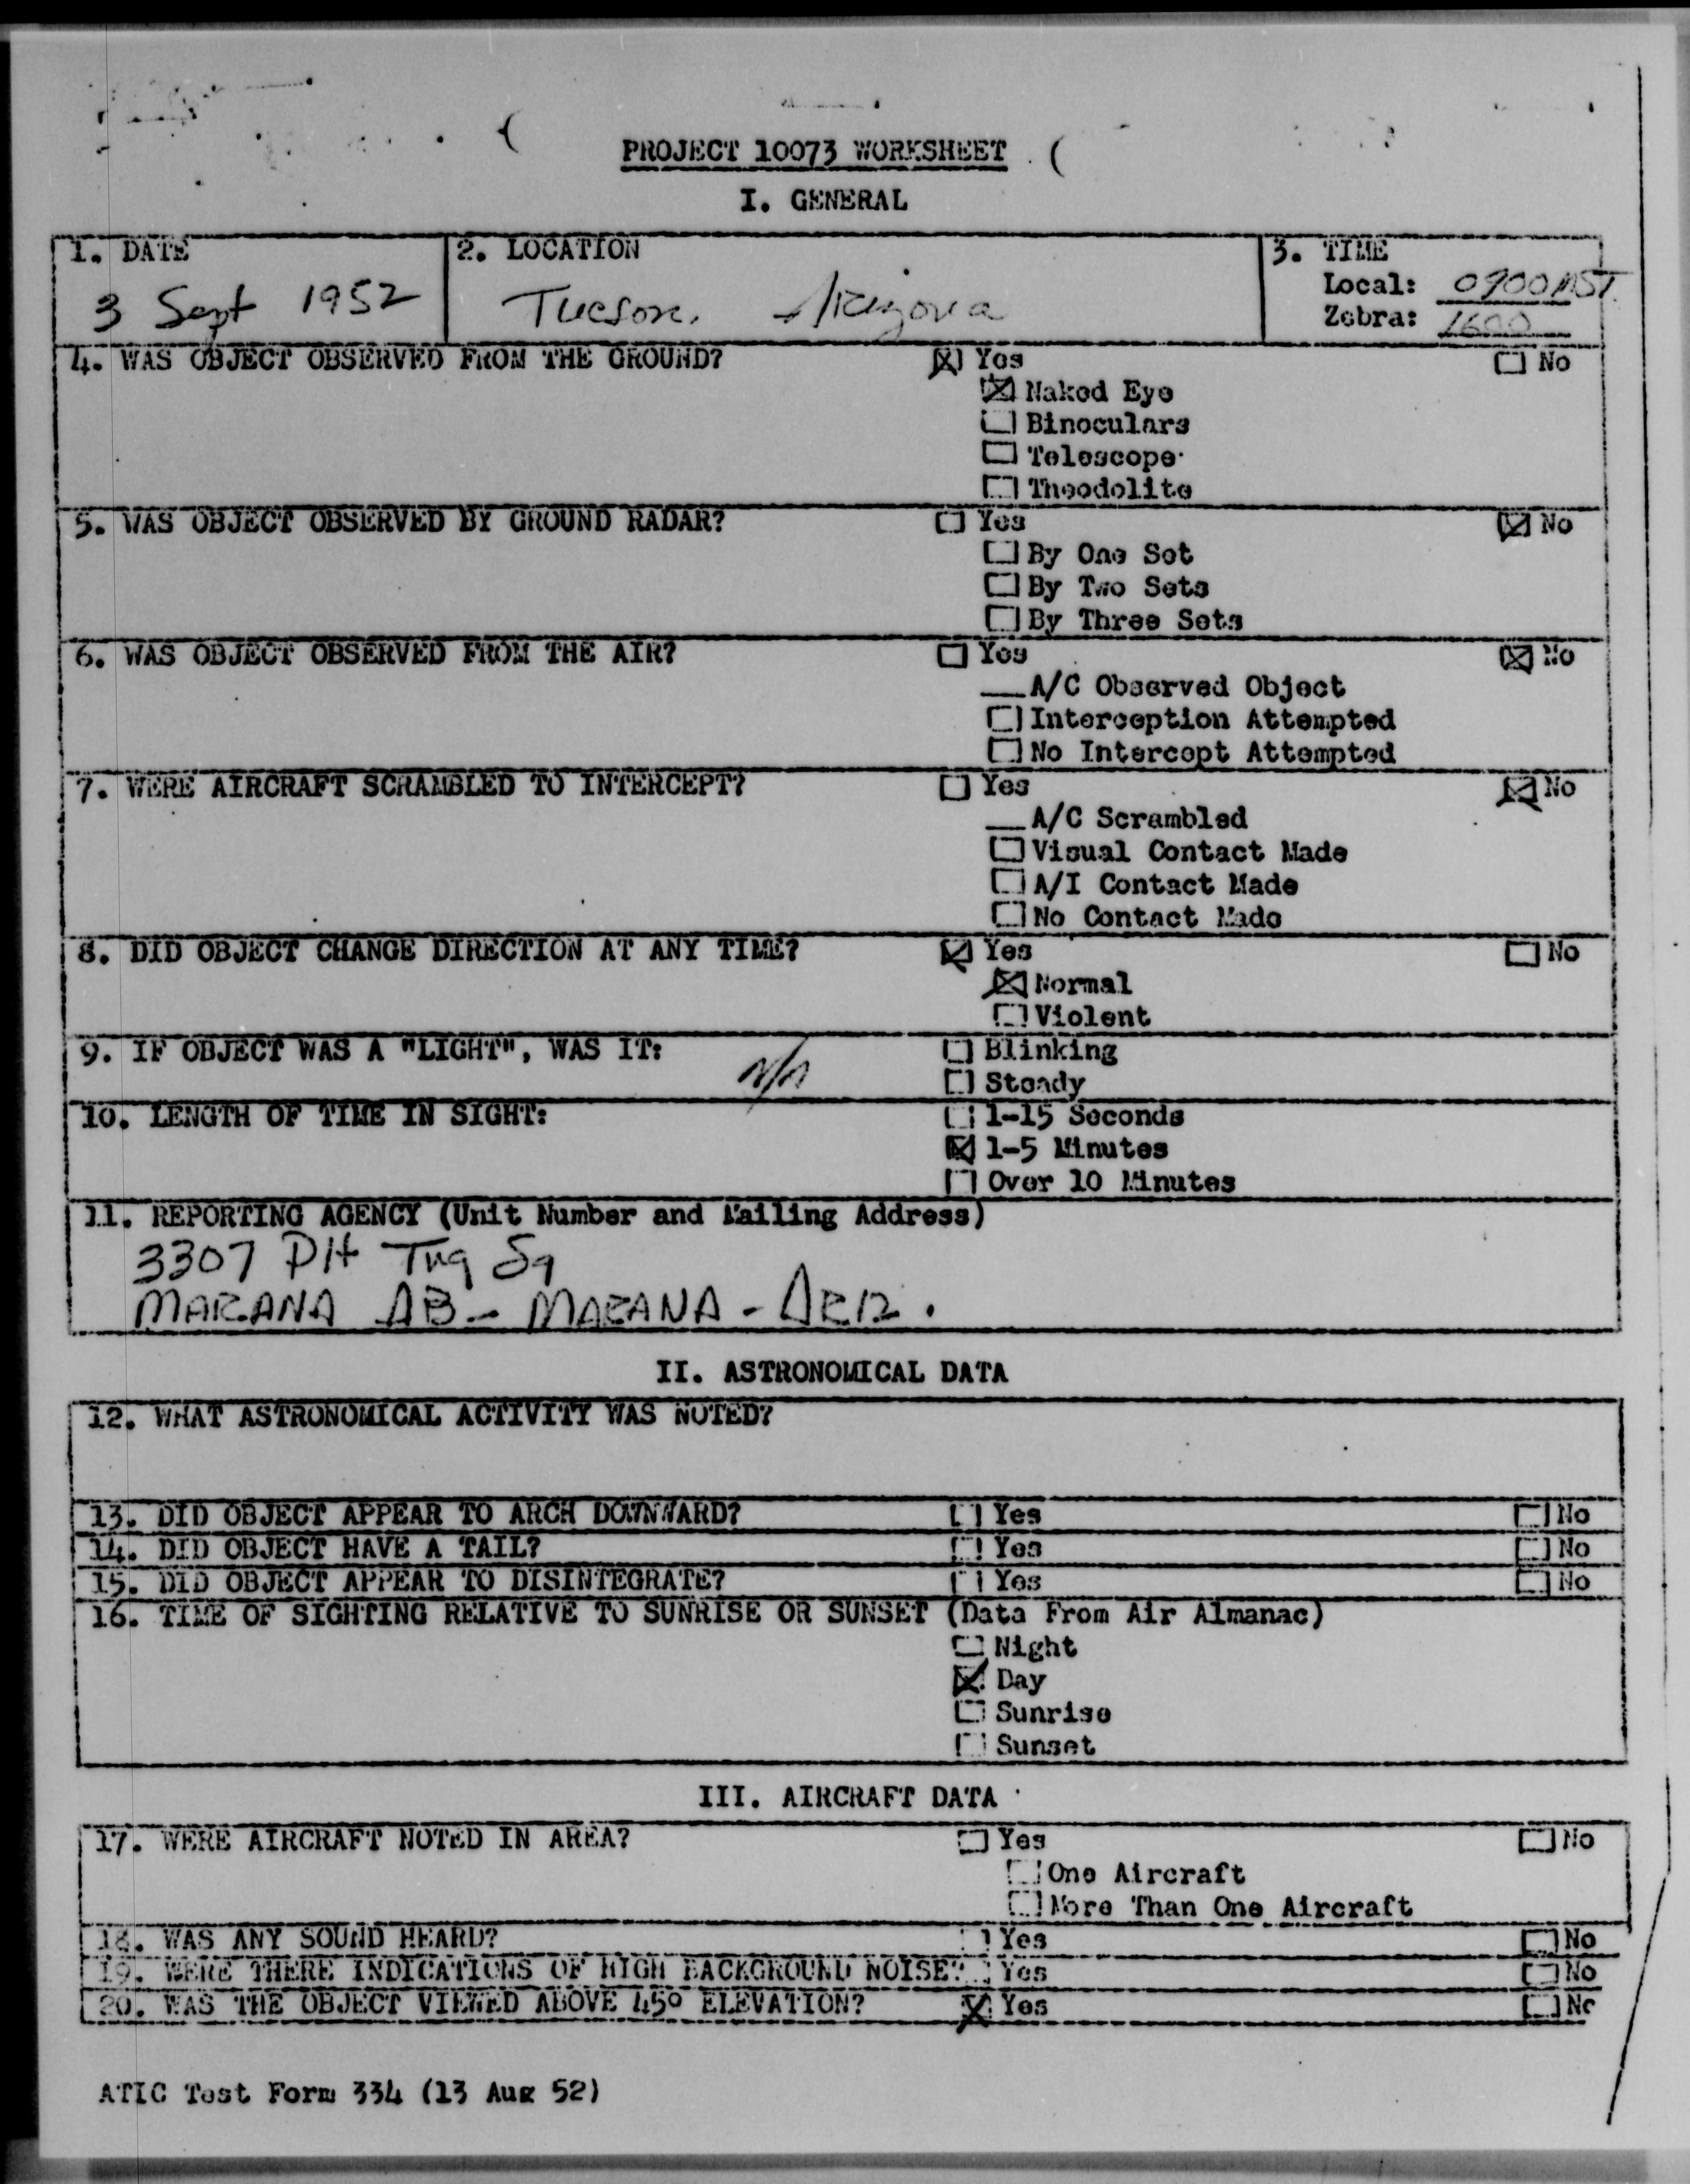 PROJECT 10073 WORKSHEET
I. GENERAL
1. DATE
3 Sept 1952
2. LOCATION
Tucson, Arizona
3. TIME
Local: 0900 MST
Zebra: 1600
4. WAS OBJECT OBSERVED FROM THE GROUND? ☒ Yes ☐ No
☒ Naked Eye
☐ Binoculars
☐ Telescope
☐ Theodolite
5. WAS OBJECT OBSERVED BY GROUND RADAR? ☐ Yes ☒ No
☐ By One Set
☐ By Two Sets
☐ By Three Sets
6. WAS OBJECT OBSERVED FROM THE AIR? ☐ Yes ☒ No
__A/C Observed Object
☐ Interception Attempted
☐ No Intercept Attempted
7. WERE AIRCRAFT SCRAMBLED TO INTERCEPT? ☐ Yes ☒ No
__A/C Scrambled
☐ Visual Contact Made
☐ A/I Contact Made
☐ No Contact Made
8. DID OBJECT CHANGE DIRECTION AT ANY TIME? ☒ Yes ☐ No
☒ Normal
☐ Violent
9. IF OBJECT WAS A "LIGHT", WAS IT: N/A ☐ Blinking
☐ Steady
10. LENGTH OF TIME IN SIGHT: ☐ 1-15 Seconds
☒ 1-5 Minutes
☐ Over 10 Minutes
11. REPORTING AGENCY (Unit Number and Mailing Address)
3307 Plt Tng Sq
MARANA AB - MARANA - ARIZ.
II. ASTRONOMICAL DATA
12. WHAT ASTRONOMICAL ACTIVITY WAS NOTED?
13. DID OBJECT APPEAR TO ARCH DOWNWARD? ☐ Yes ☐ No
14. DID OBJECT HAVE A TAIL? ☐ Yes ☐ No
15. DID OBJECT APPEAR TO DISINTEGRATE? ☐ Yes ☐ No
16. TIME OF SIGHTING RELATIVE TO SUNRISE OR SUNSET (Data From Air Almanac)
☐ Night
☒ Day
☐ Sunrise
☐ Sunset
III. AIRCRAFT DATA
17. WERE AIRCRAFT NOTED IN AREA? ☐ Yes ☐ No
☐ One Aircraft
☐ More Than One Aircraft
18. WAS ANY SOUND HEARD? ☐ Yes ☐ No
19. WERE THERE INDICATIONS OF HIGH BACKGROUND NOISE? ☐ Yes ☐ No
20. WAS THE OBJECT VIEWED ABOVE 45° ELEVATION? ☒ Yes ☐ No
ATIC Test Form 334 (13 Aug 52)